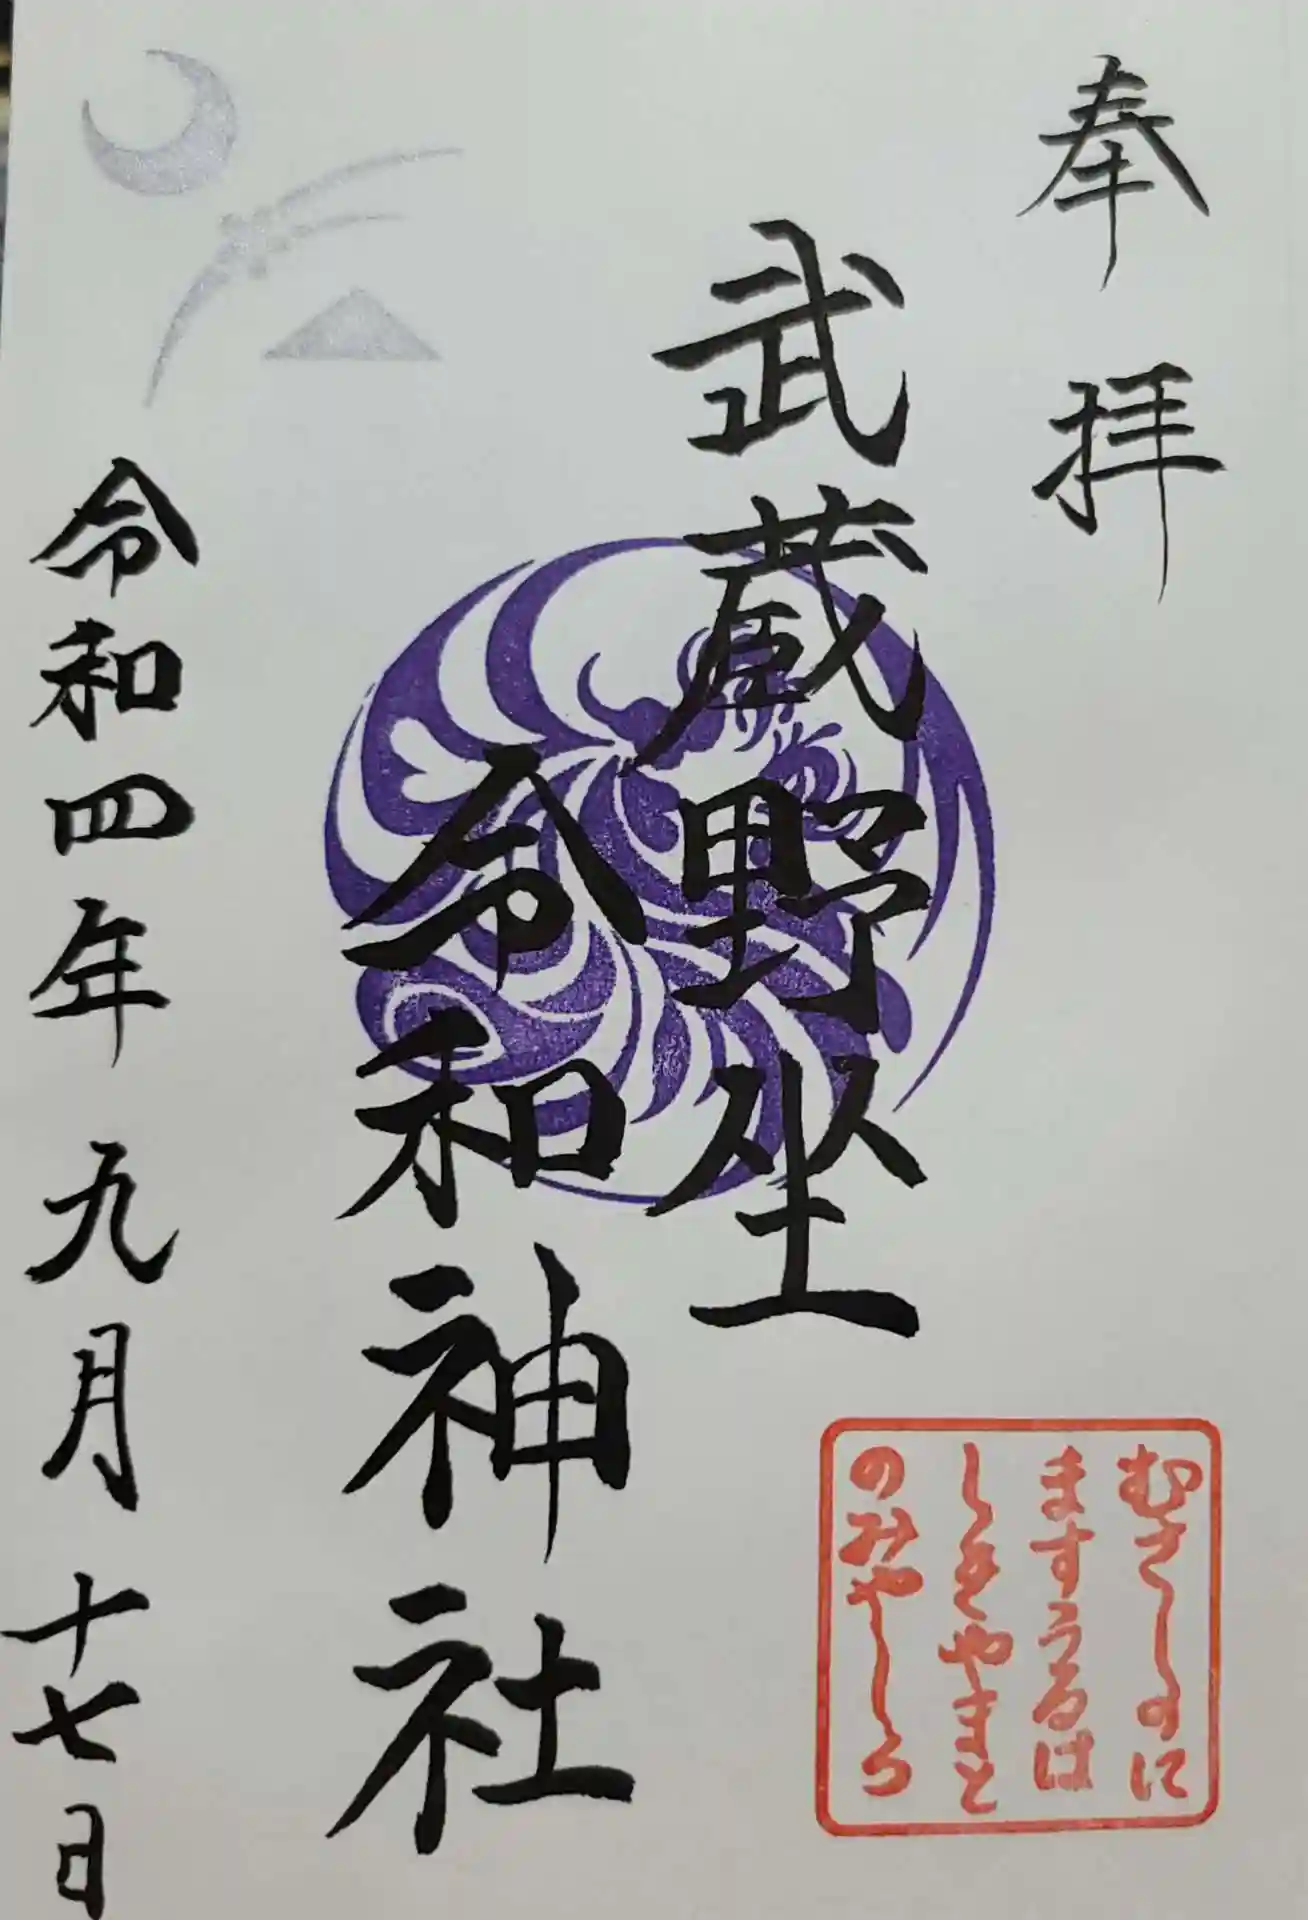 奉拝
武蔵野坐
令和神社
むさしのに
ますうるは
しきやまと
のみやしろ
令和四年九月十七日